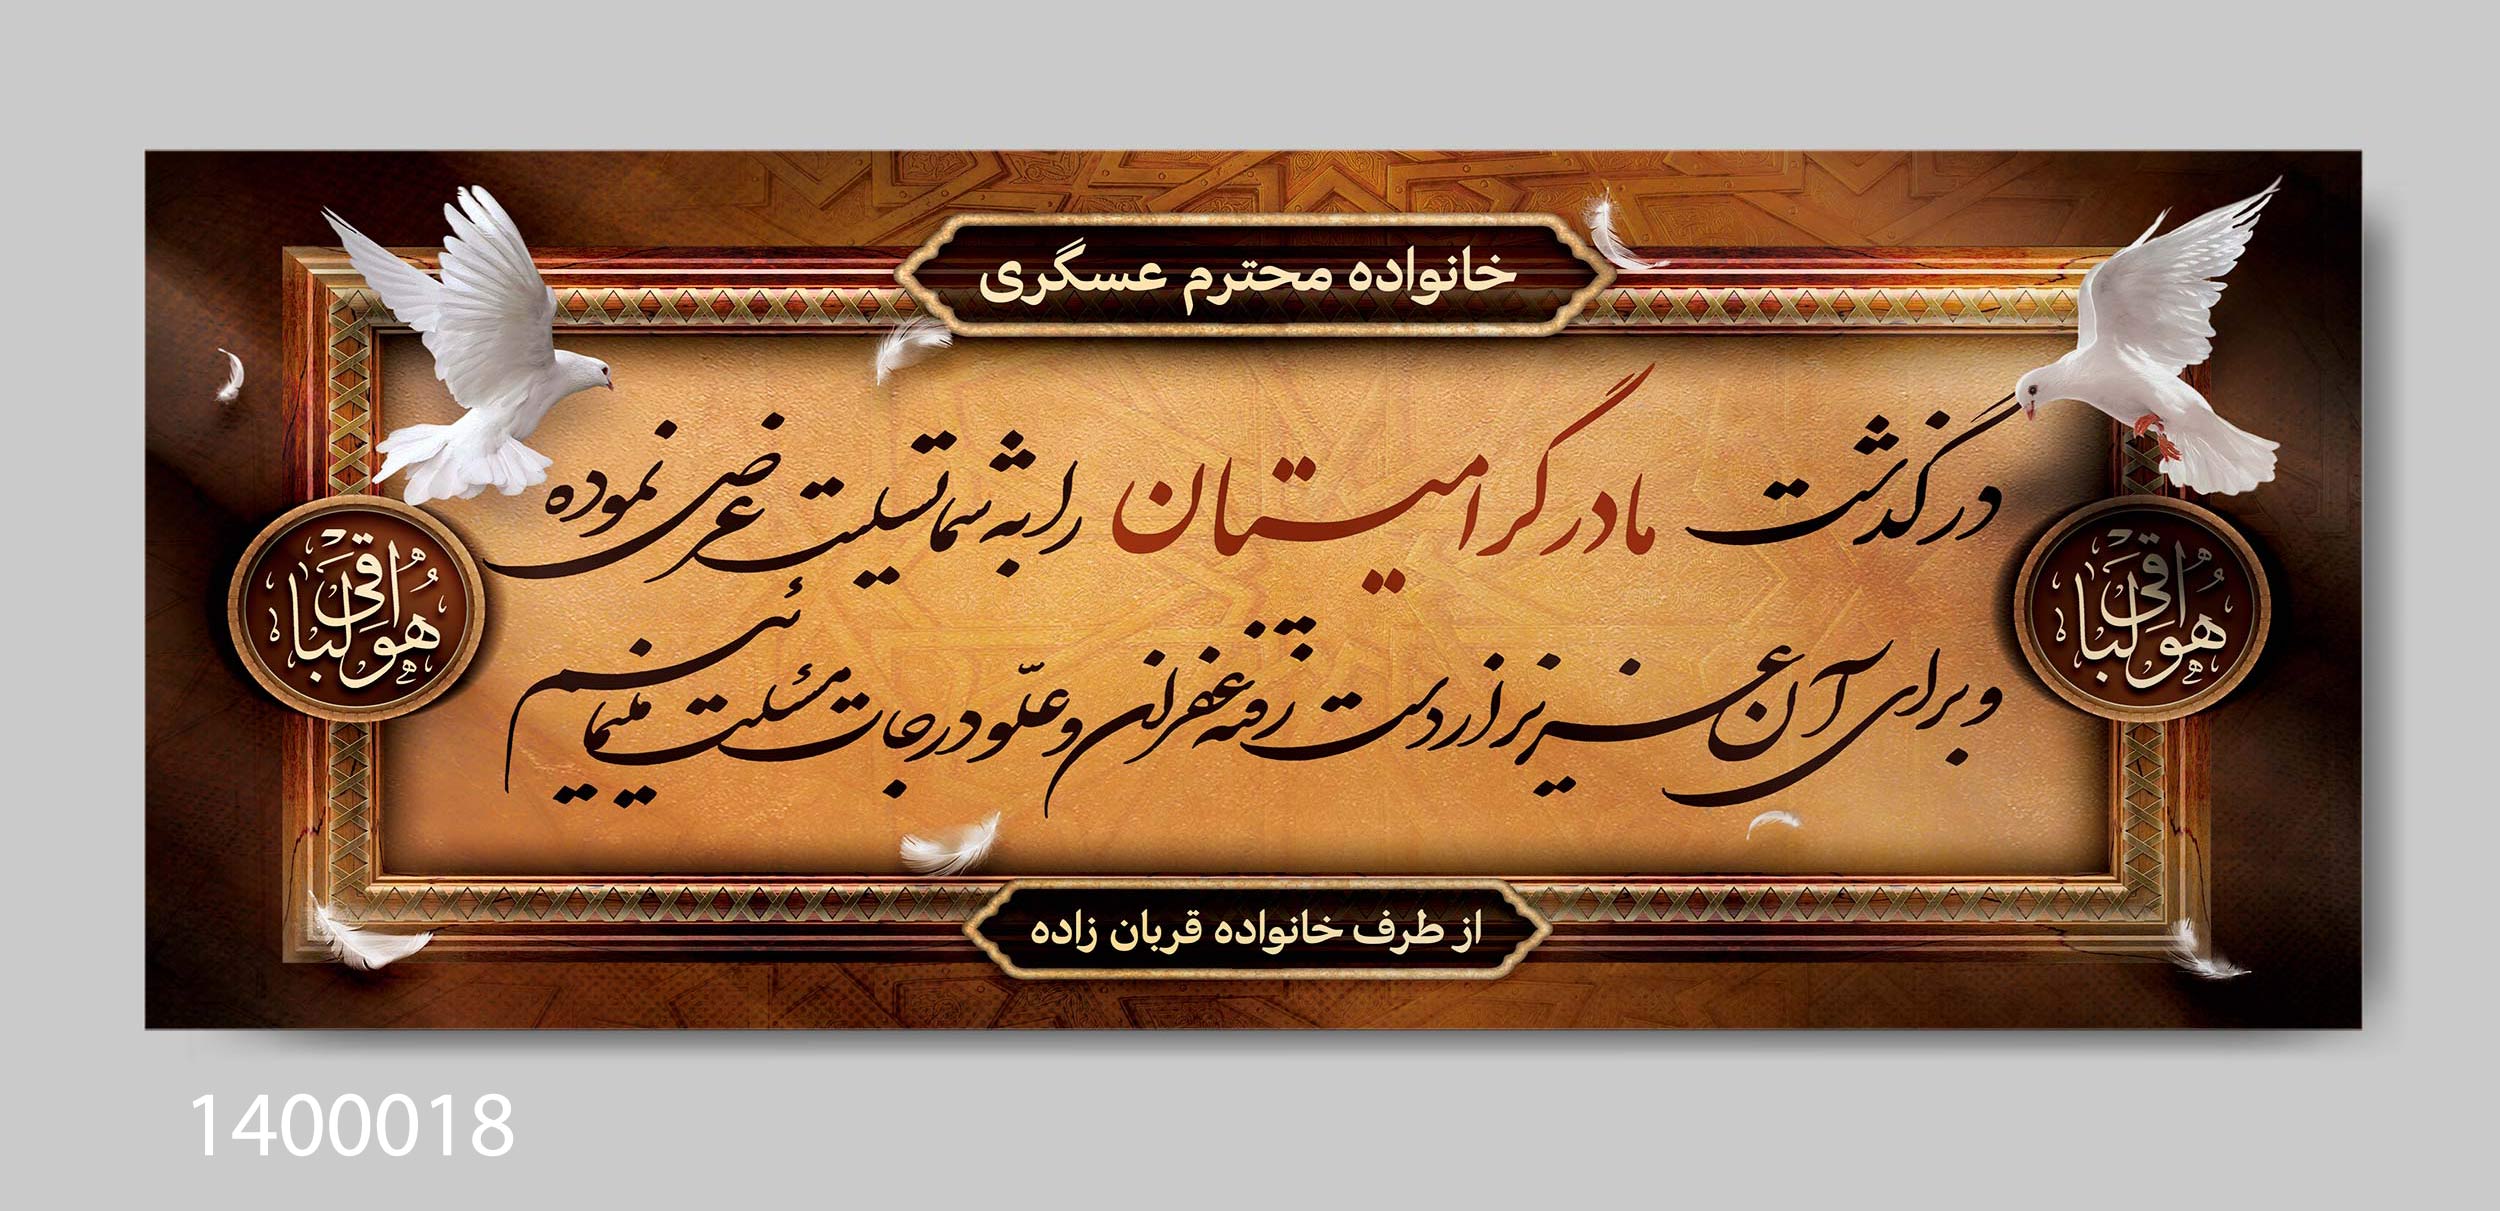 خانواده محترم عسگری
درگذشت مادر گرامیتان را به شما تسلیت عرض نموده
و برای آن عزیز از درگاه رحمت و غفران و علّو درجات مسئلت مینمائیم
هوالباقی
هوالباقی
از طرف خانواده قربان زاده
1400018